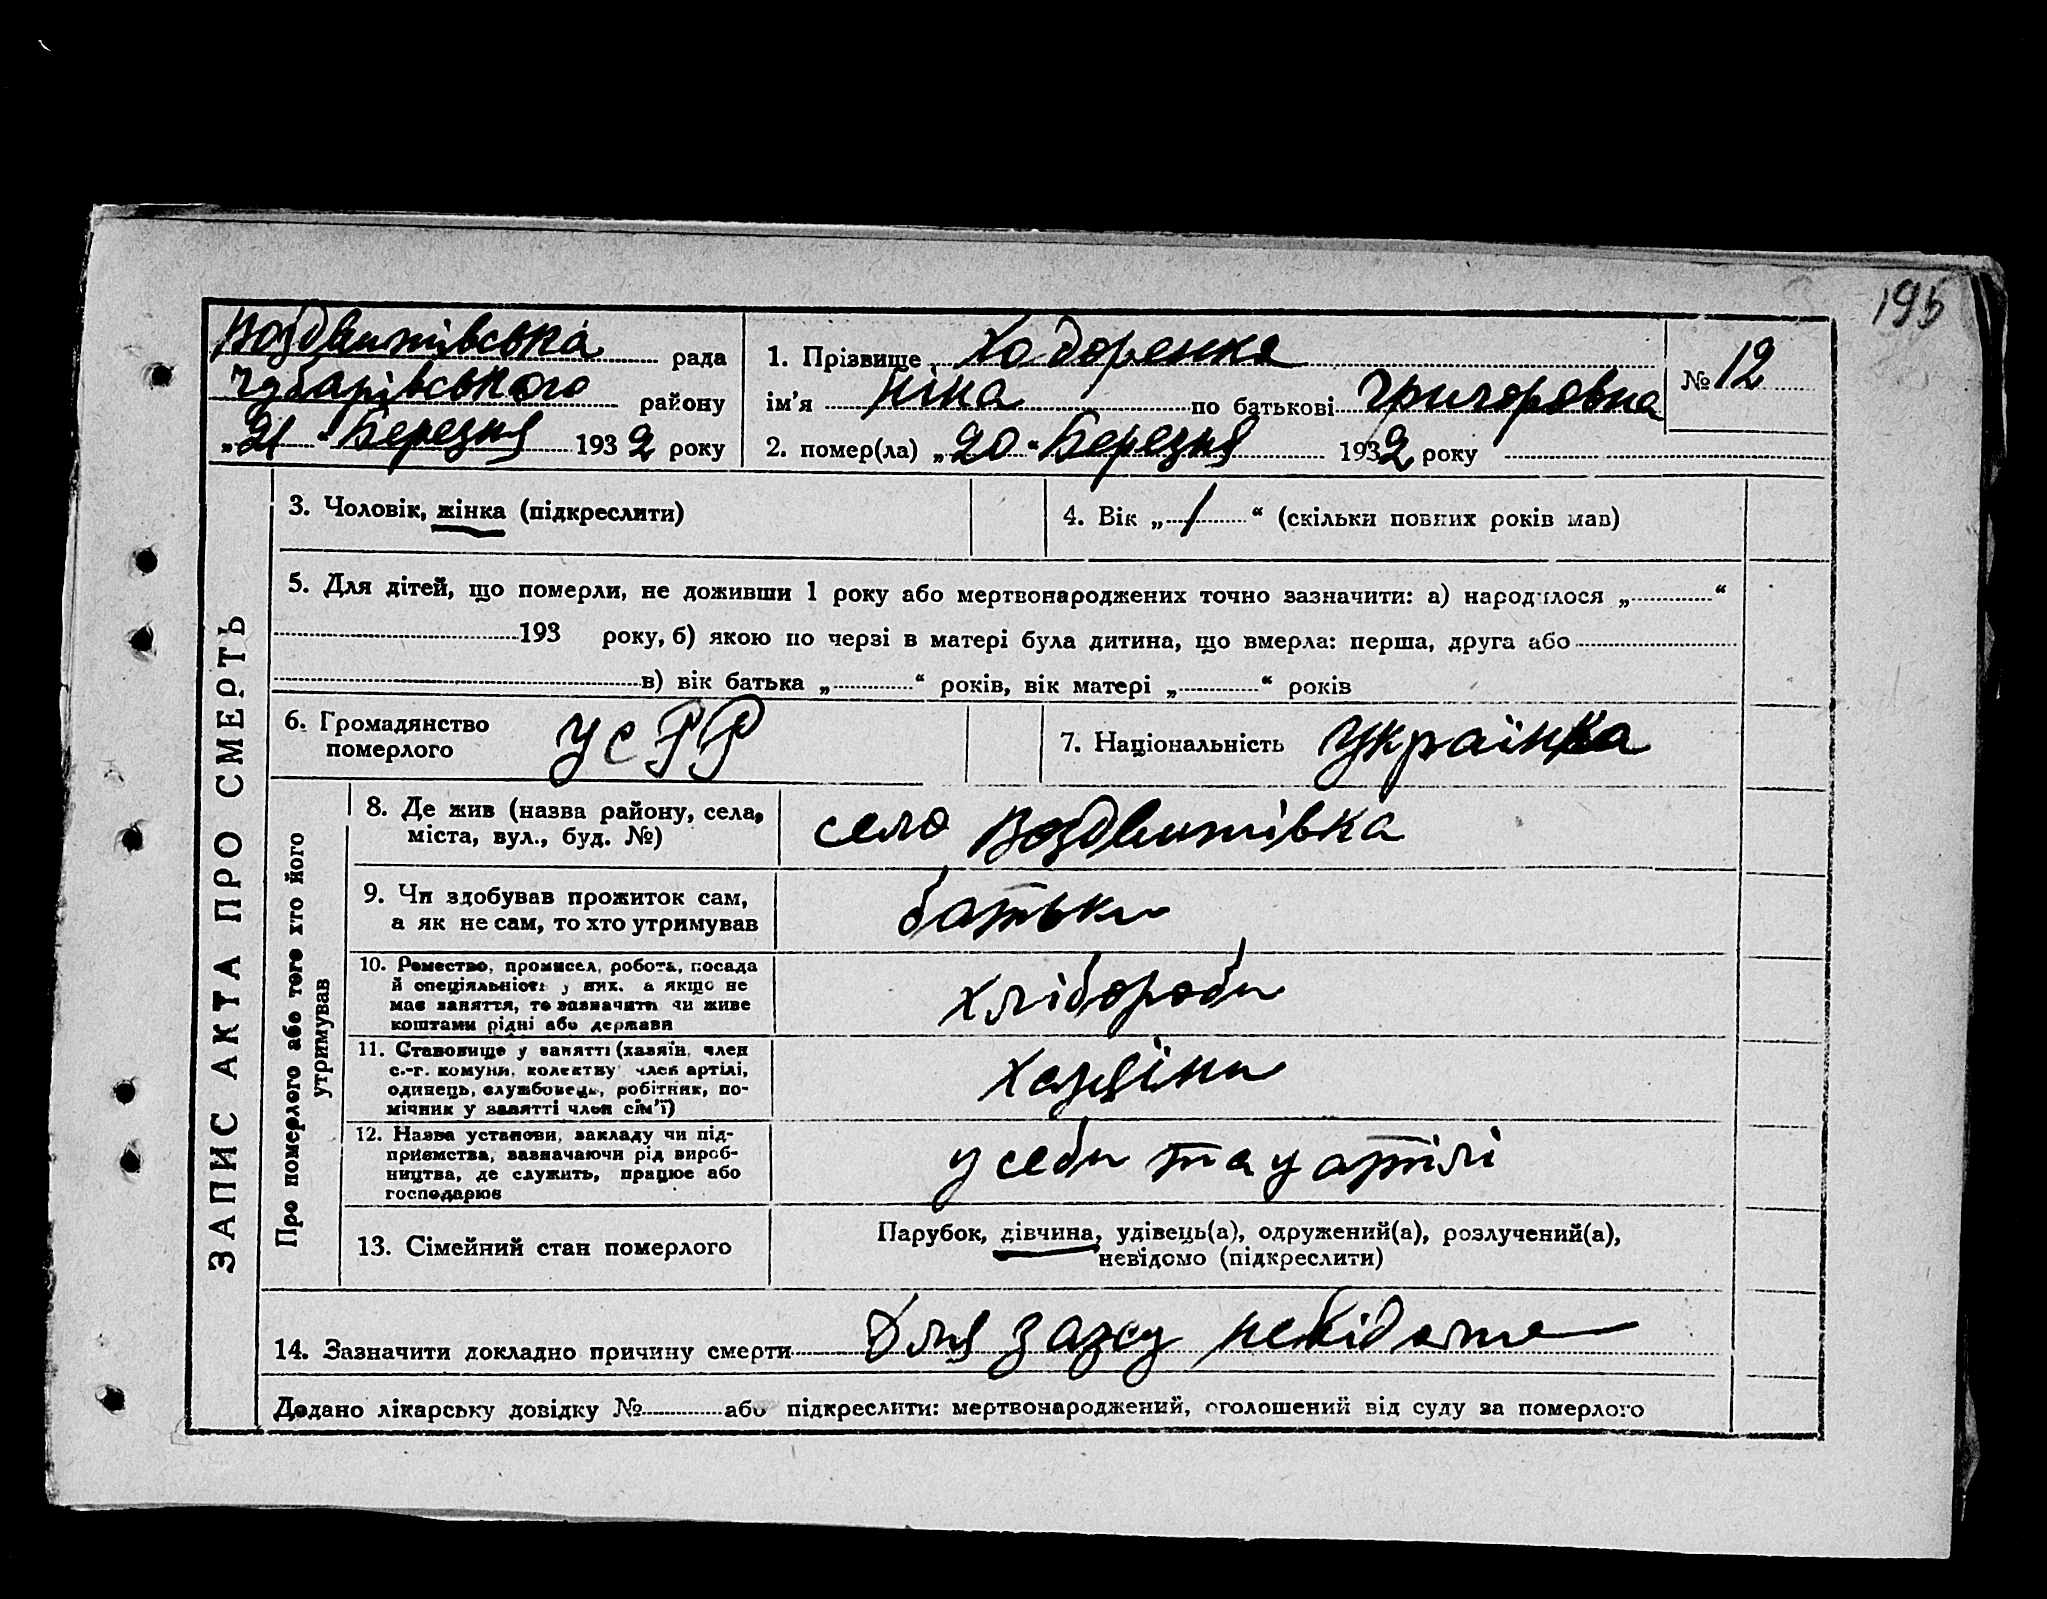 195
Воздвитівська рада
Чубарівського району
„21“ Березня 1932 року
1. Прізвище Ходоренко
ім’я Ніна по батькові Григоровна
№ 12
2. помер(ла) „20“ Березня 1932 року
ЗАПИС АКТА ПРО СМЕРТЬ
3. Чоловік, жінка (підкреслити)
4. Вік „1“ (скільки повних років мав)
5. Для дітей, що померли, не доживши 1 року або мертвонароджених точно зазначити: а) народилося „ “
193 року, б) якою по черзі в матері була дитина, що вмерла: перша, друга або
в) вік батька „ “ років, вік матері „ “ років
6. Громадянство
померлого
УСРР
7. Національність Українка
Про померлого або того хто його
утримував
8. Де жив (назва району, села,
міста, вул., буд. №)
село Воздвитівка
9. Чи здобував прожиток сам,
а як не сам, то хто утримував
батьки
10. Ремество, промисел, робота, посада
й спеціяльність у них, а якщо не
має заняття, то зазначити чи живе
коштами рідні або держави
хлібороби
11. Становище у занятті (хазяїн, член
с.-г. комуни, колективу член артілі,
одинець, службовець, робітник, по-
мічник у занятті член сім’ї)
Хазяїни
12. Назва установи, закладу чи під-
приємства, зазначаючи рід вироб-
ництва, де служить, працює або
господарює
у себи та у артілі
13. Сімейний стан померлого
Парубок, дівчина, удівець(а), одружений(а), розлучений(а),
невідомо (підкреслити)
14. Зазначити докладно причину смерти Для загсу невідоме
Додано лікарську довідку № або підкреслити: мертвонароджений, оголошений від суду за померлого